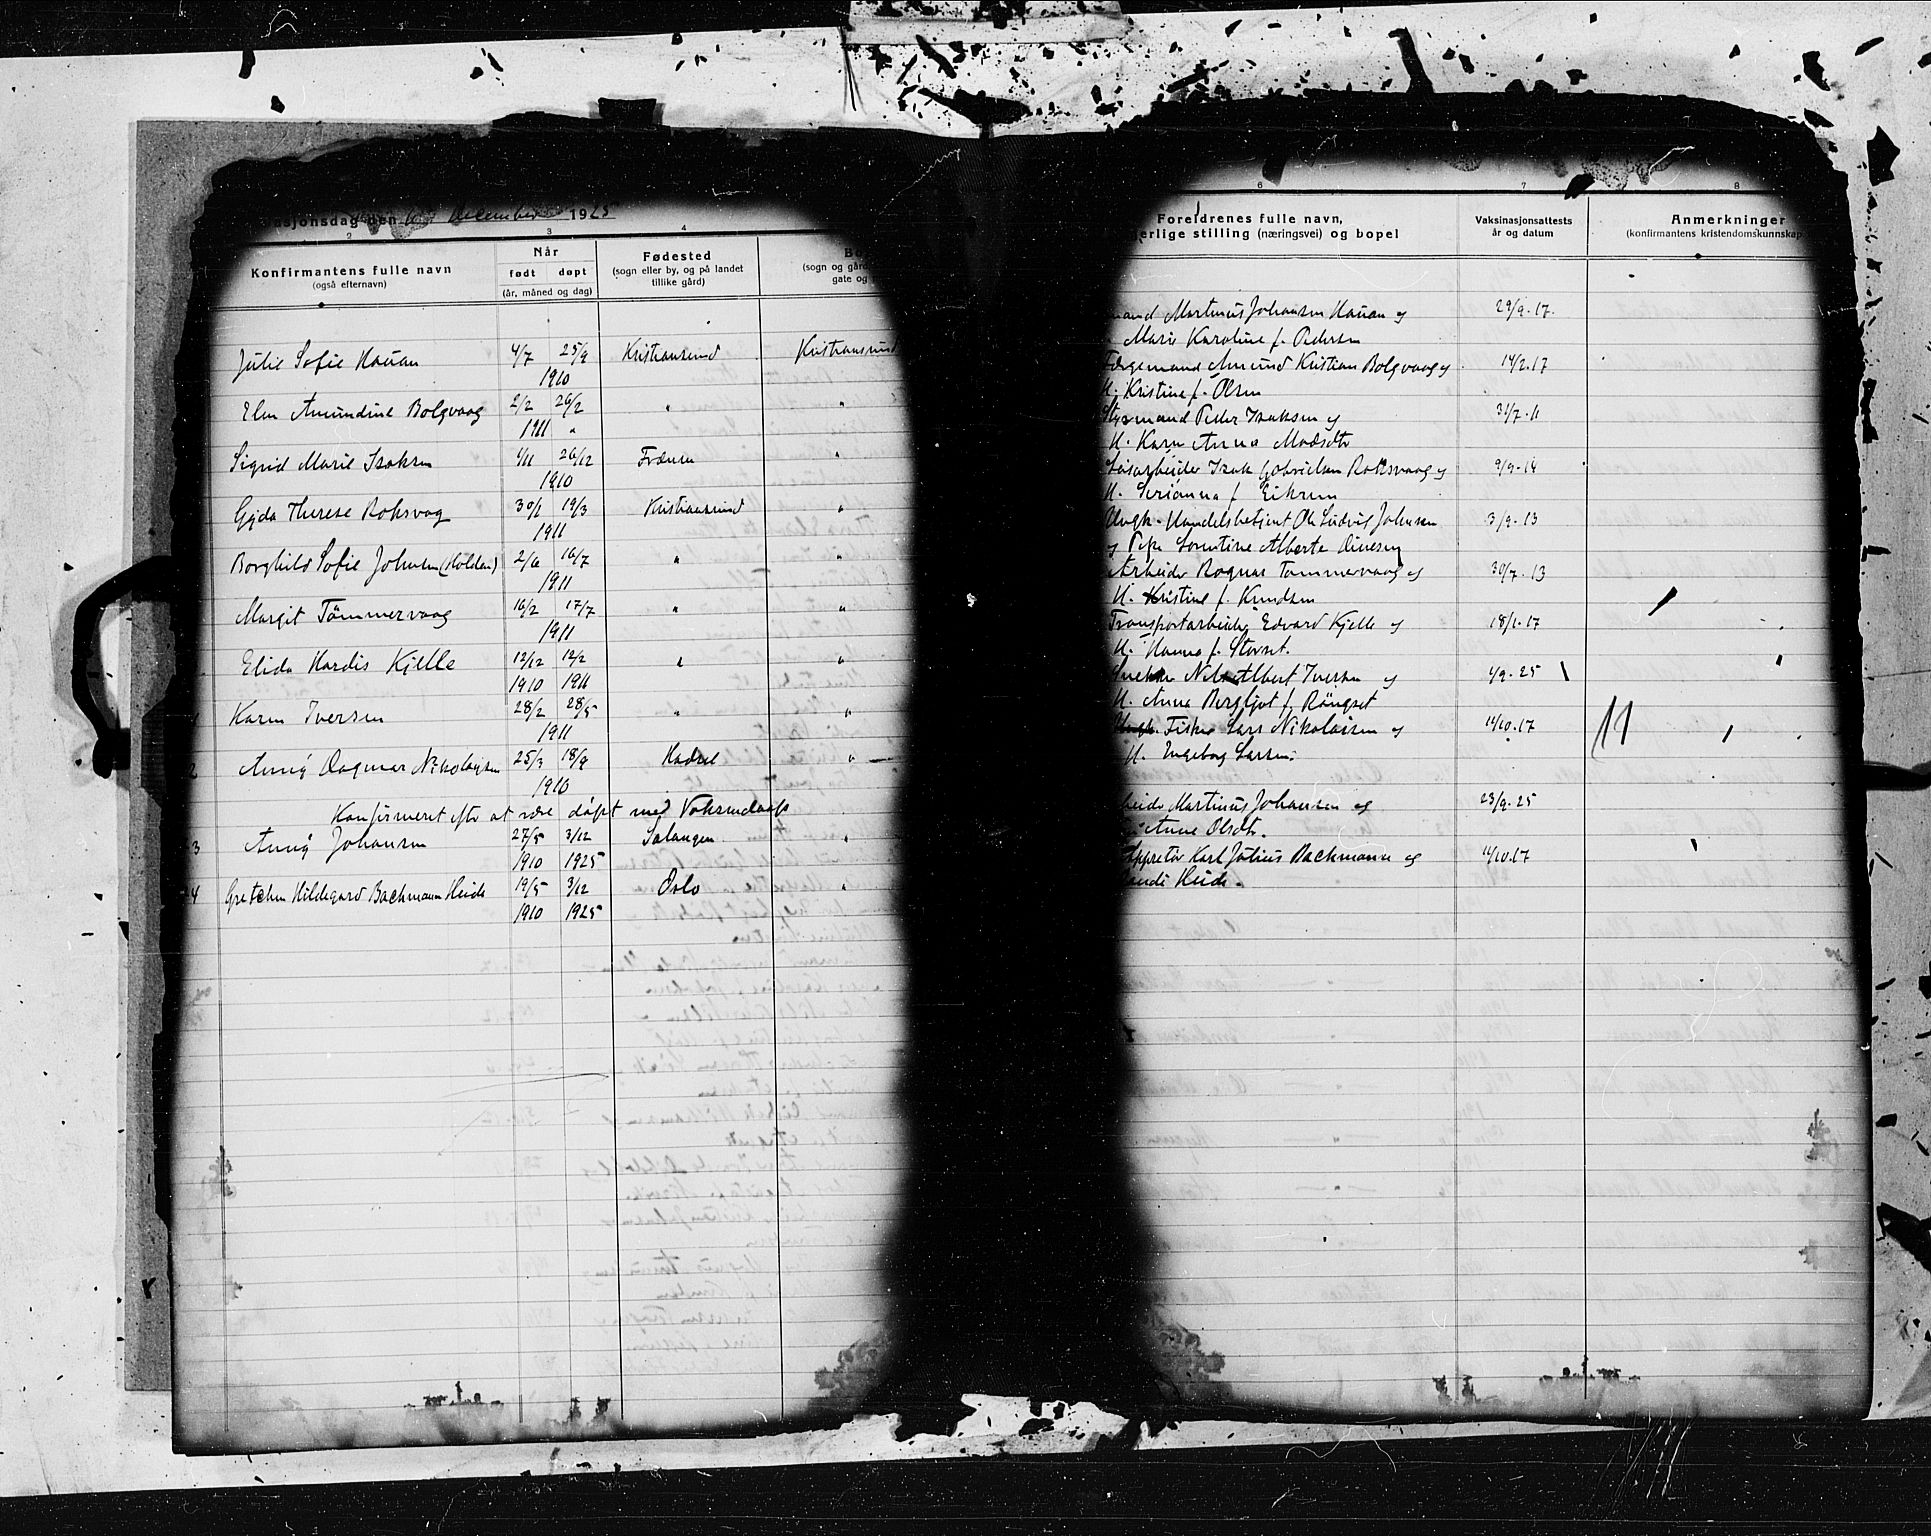 asjonsdag den 6 december 1925
2
3
4
Konfirmantens fulle navn
(også efternavn)
Når
født døpt
(år, måned og dag)
Fødested
(sogn eller by, og på landet
tillike gård)
Bo
(sogn og gård
gate og
Julie Sofie Hauan 4/7 25/9 Kristiansund Kristiansund
1910
Elen Amundine Bolgvaag 2/2 26/2 " "
1911 "
Sigrid Marie Isaksen 1/11 26/12 Frænen "
1910
Gyda Therese Roksvag 30/1 19/3 Kristiansund "
1911
Borghild Sofie Johnsen (Holden) 2/6 16/7 " "
1911
Margit Tömmervaag 16/2 17/7 " "
1911
Elida Hardis Kjelle 12/12 12/2 " "
1910 1911
Karen Iversen 28/2 28/5 " "
1911
2 Anny Dagmar Nikolaysen 25/3 18/9 Hadsel "
1910
Konfirmeret efter at være döpt med Voksendaap
3 Anny Johansen 27/5 3/12 Salangen "
1910 1925
4 Gretchen Hildegard Bachmann Heide 19/5 3/12 Oslo "
1910 1925
6
7
8
Foreldrenes fulle navn,
gerlige stilling (næringsvei) og bopel
Vaksinasjonsattests
år og datum
Anmerkninger
(konfirmantens kristendomskunnskap
mand Martinus Johansen Hauan og 29/9.17.
Marie Karoline f. Pedersen
Færgemand Amund Kristian Bolgvaag og 14/2.17
H. Kristine f. Olsen
Styrmand Peder Isaksen og 31/7.11
H. Karen Anna Madsdtr
Løsarbeider Isak Gabrielsen Roksvaag og 9/9.14
H. Serianna f. Eikrem
Ungk. Handelsbetjent Ole Ludvig Johnsen 3/9.13
og Pike Sorentine Alberte
Arbeider Ragnar Tommervaag og 30/7.13
H. Kristine f. Knudsen
Transportarbeider Edvard Kjelle og 18/1.17
H. Hanna f. Storset.
Snekker Nils Albert Iversen og 4/9.25
H. Anna Bergljot f. Rängset
Ungk. Fisker Lars Nikolaisen og 14/10.17
H. Ingeborg Larsen.
beider Martinus Johansen og 23/9.25
Anne Olsdtr.
Appretör Karl Julius Bachmann og 14/10.17
Heide.